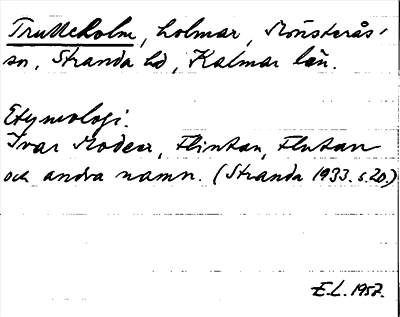 Trutteholm, holmar, Mönsterås
sn, Stranda hd, Kalmar län.
Etymologi.
Ivar Modéer, Flintan, Flutan
och andra namn. (Stranda 1933. s. 20.)
E.L. 1957.